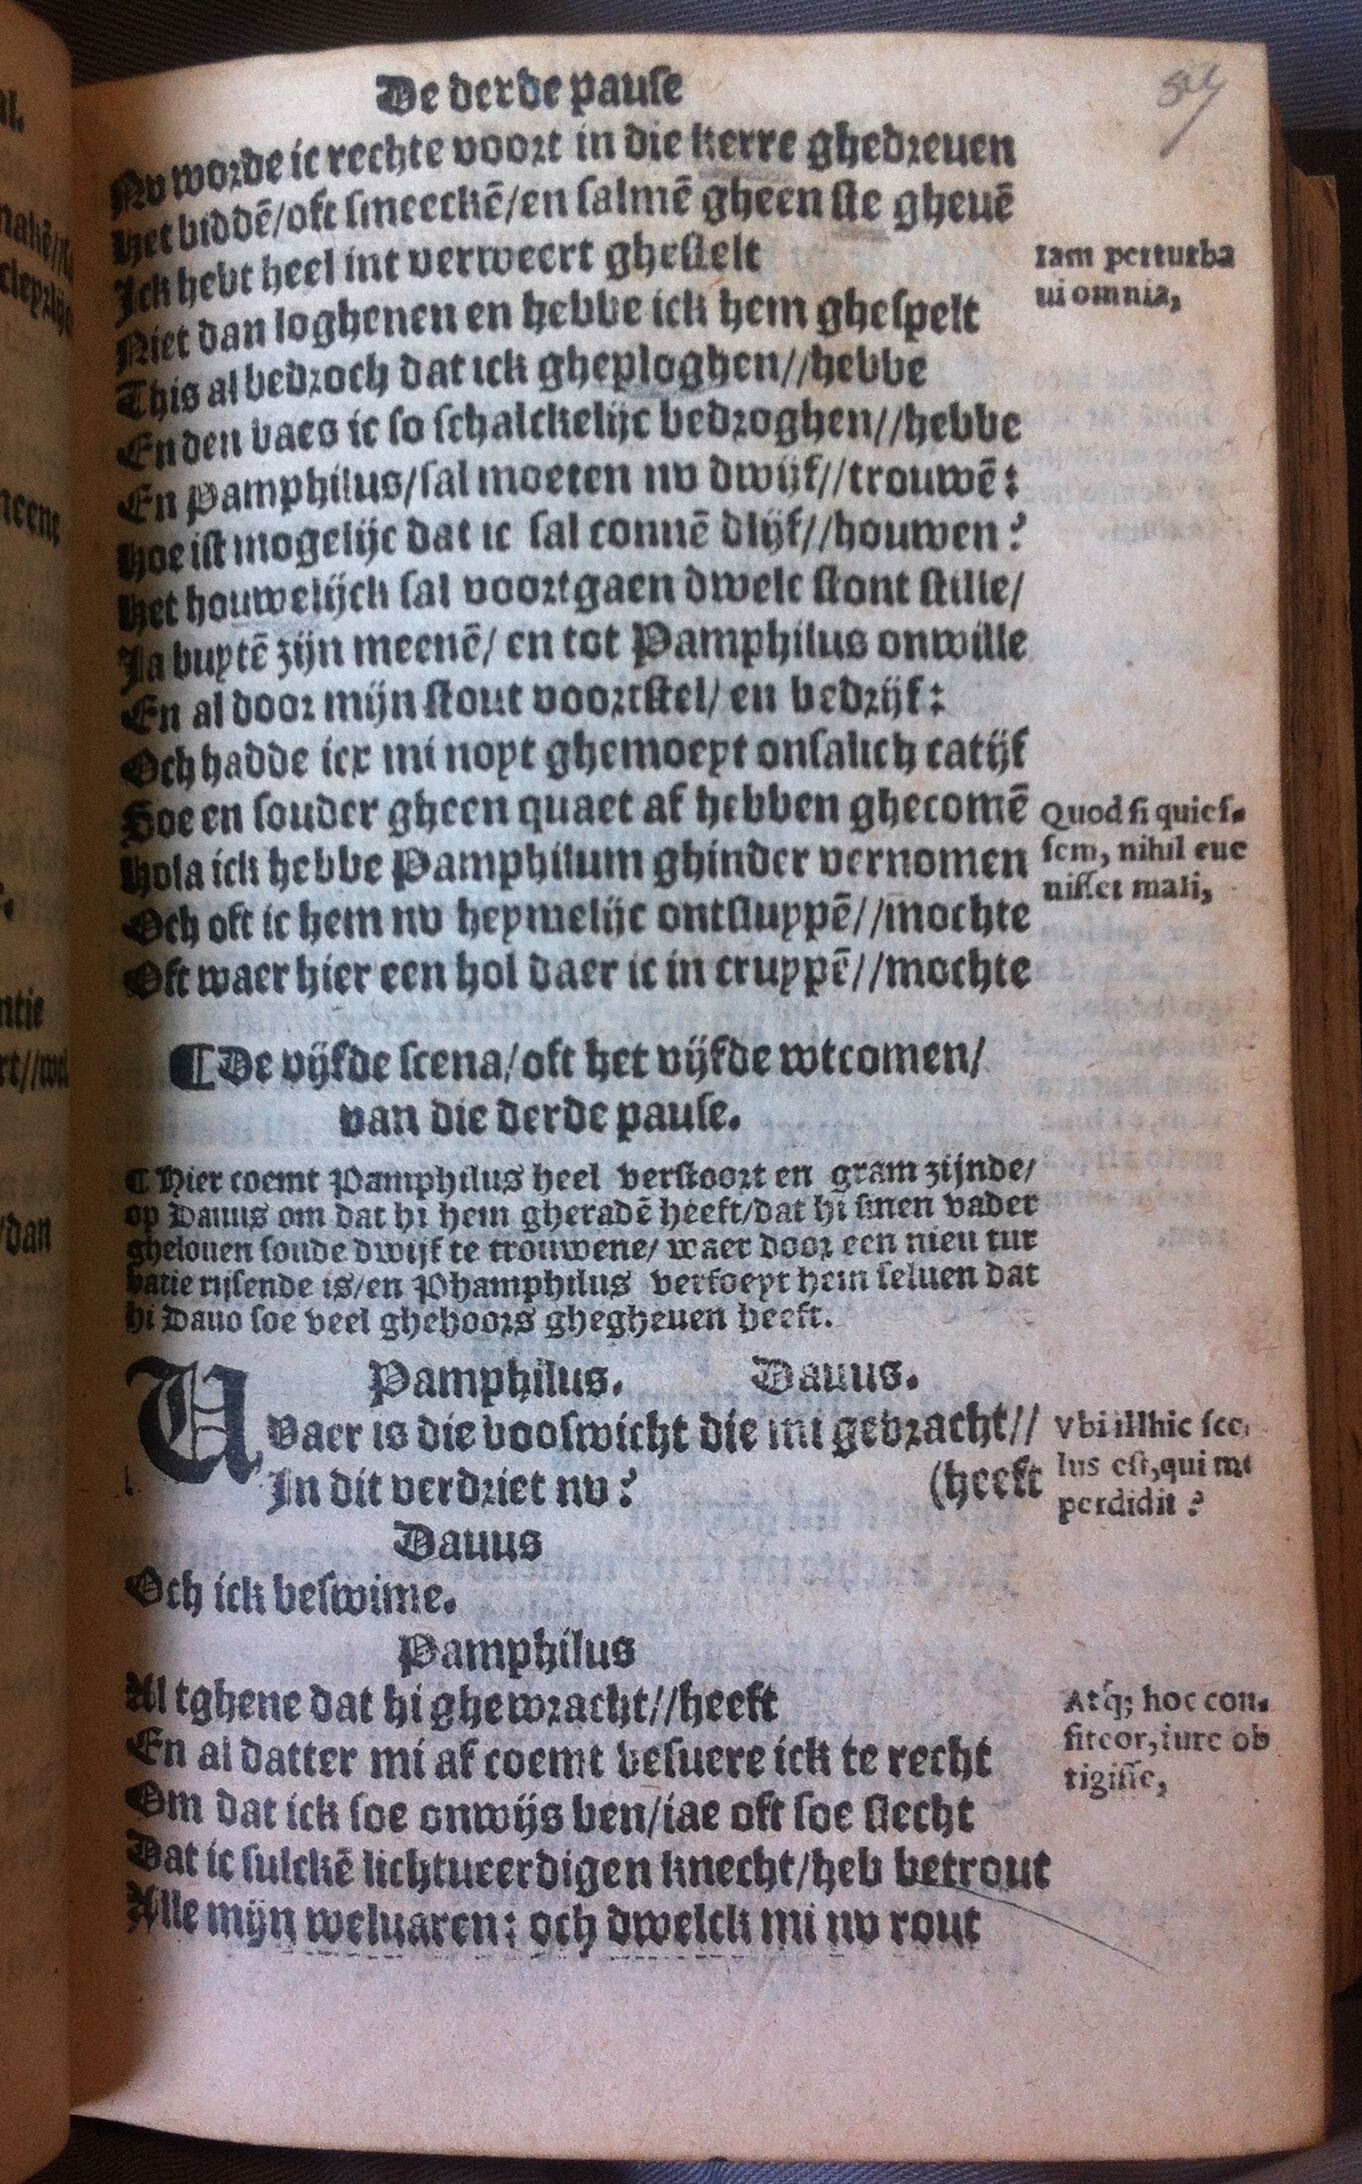 De derde pause
Nv worde ic rechte voort in die kerre ghedreuen
Het biddē/oft smeeckē/en salmē gheen ste gheuē
Ick hebt heel int verweert ghestelt
Iam perturba
ui omnia,
Niet dan loghenen en hebbe ick hem ghespelt
This al bedroch dat ick gheploghen//hebbe
En den baes ic so schalckelijc bedroghen//hebbe
En Pamphilus/sal moeten nv dwijf//trouwē:
Hoe ist mogelijc dat ic sal connē dlijf//houwen?
Het houwelijck sal voortgaen dwelc stont stille/
Ja buytē zijn meenē/ en tot Pamphilus onwille
En al door mijn stout voortstel/ en bedrijf:
Och hadde icx mi noyt ghemoeyt onsalich catijf
Soe en souder gheen quaet af hebben ghecomē
Quod si quies-
sem, nihil eue
nisset mali,
Hola ick hebbe Pamphilum ghinder vernomen
Och oft ic hem nv heymelijc ontsluppē//mochte
Oft waer hier een hol daer ic in cruypē//mochte
¶ De vijfde scena/oft het vijfde wtcomen/
van die derde pause.
¶ Hier coemt Pamphilus heel verstoort en gram zijnde/
op Dauus om dat hi hem gheradē heeft/dat hi sinen vader
ghelouen soude dwijf te trouwene/ waer door een nieu tur
batie rijsende is/en Phamphilus verfoeyt hem seluen dat
hi Dauo soe veel ghehoors ghegheuen heeft.
Pamphilus. Dauus.
VVaer is die booswicht die mi gebracht//
(heeft
In dit verdriet nv?
Vbi illhic sce-
lus est,qui me
perdidit?
Dauus
Och ick beswime.
Pamphilus
Al tghene dat hi ghewracht//heeft
En al datter mi af coemt besuere ick te recht
Om dat ick soe onwijs ben/iae oft soe slecht
Dat ic sulckē lichtueerdigen knecht/heb betrout
Alle mijn weluaren: och dwelck mi nv rout
Atq; hoc con-
fiteor,iure ob
tigisse,